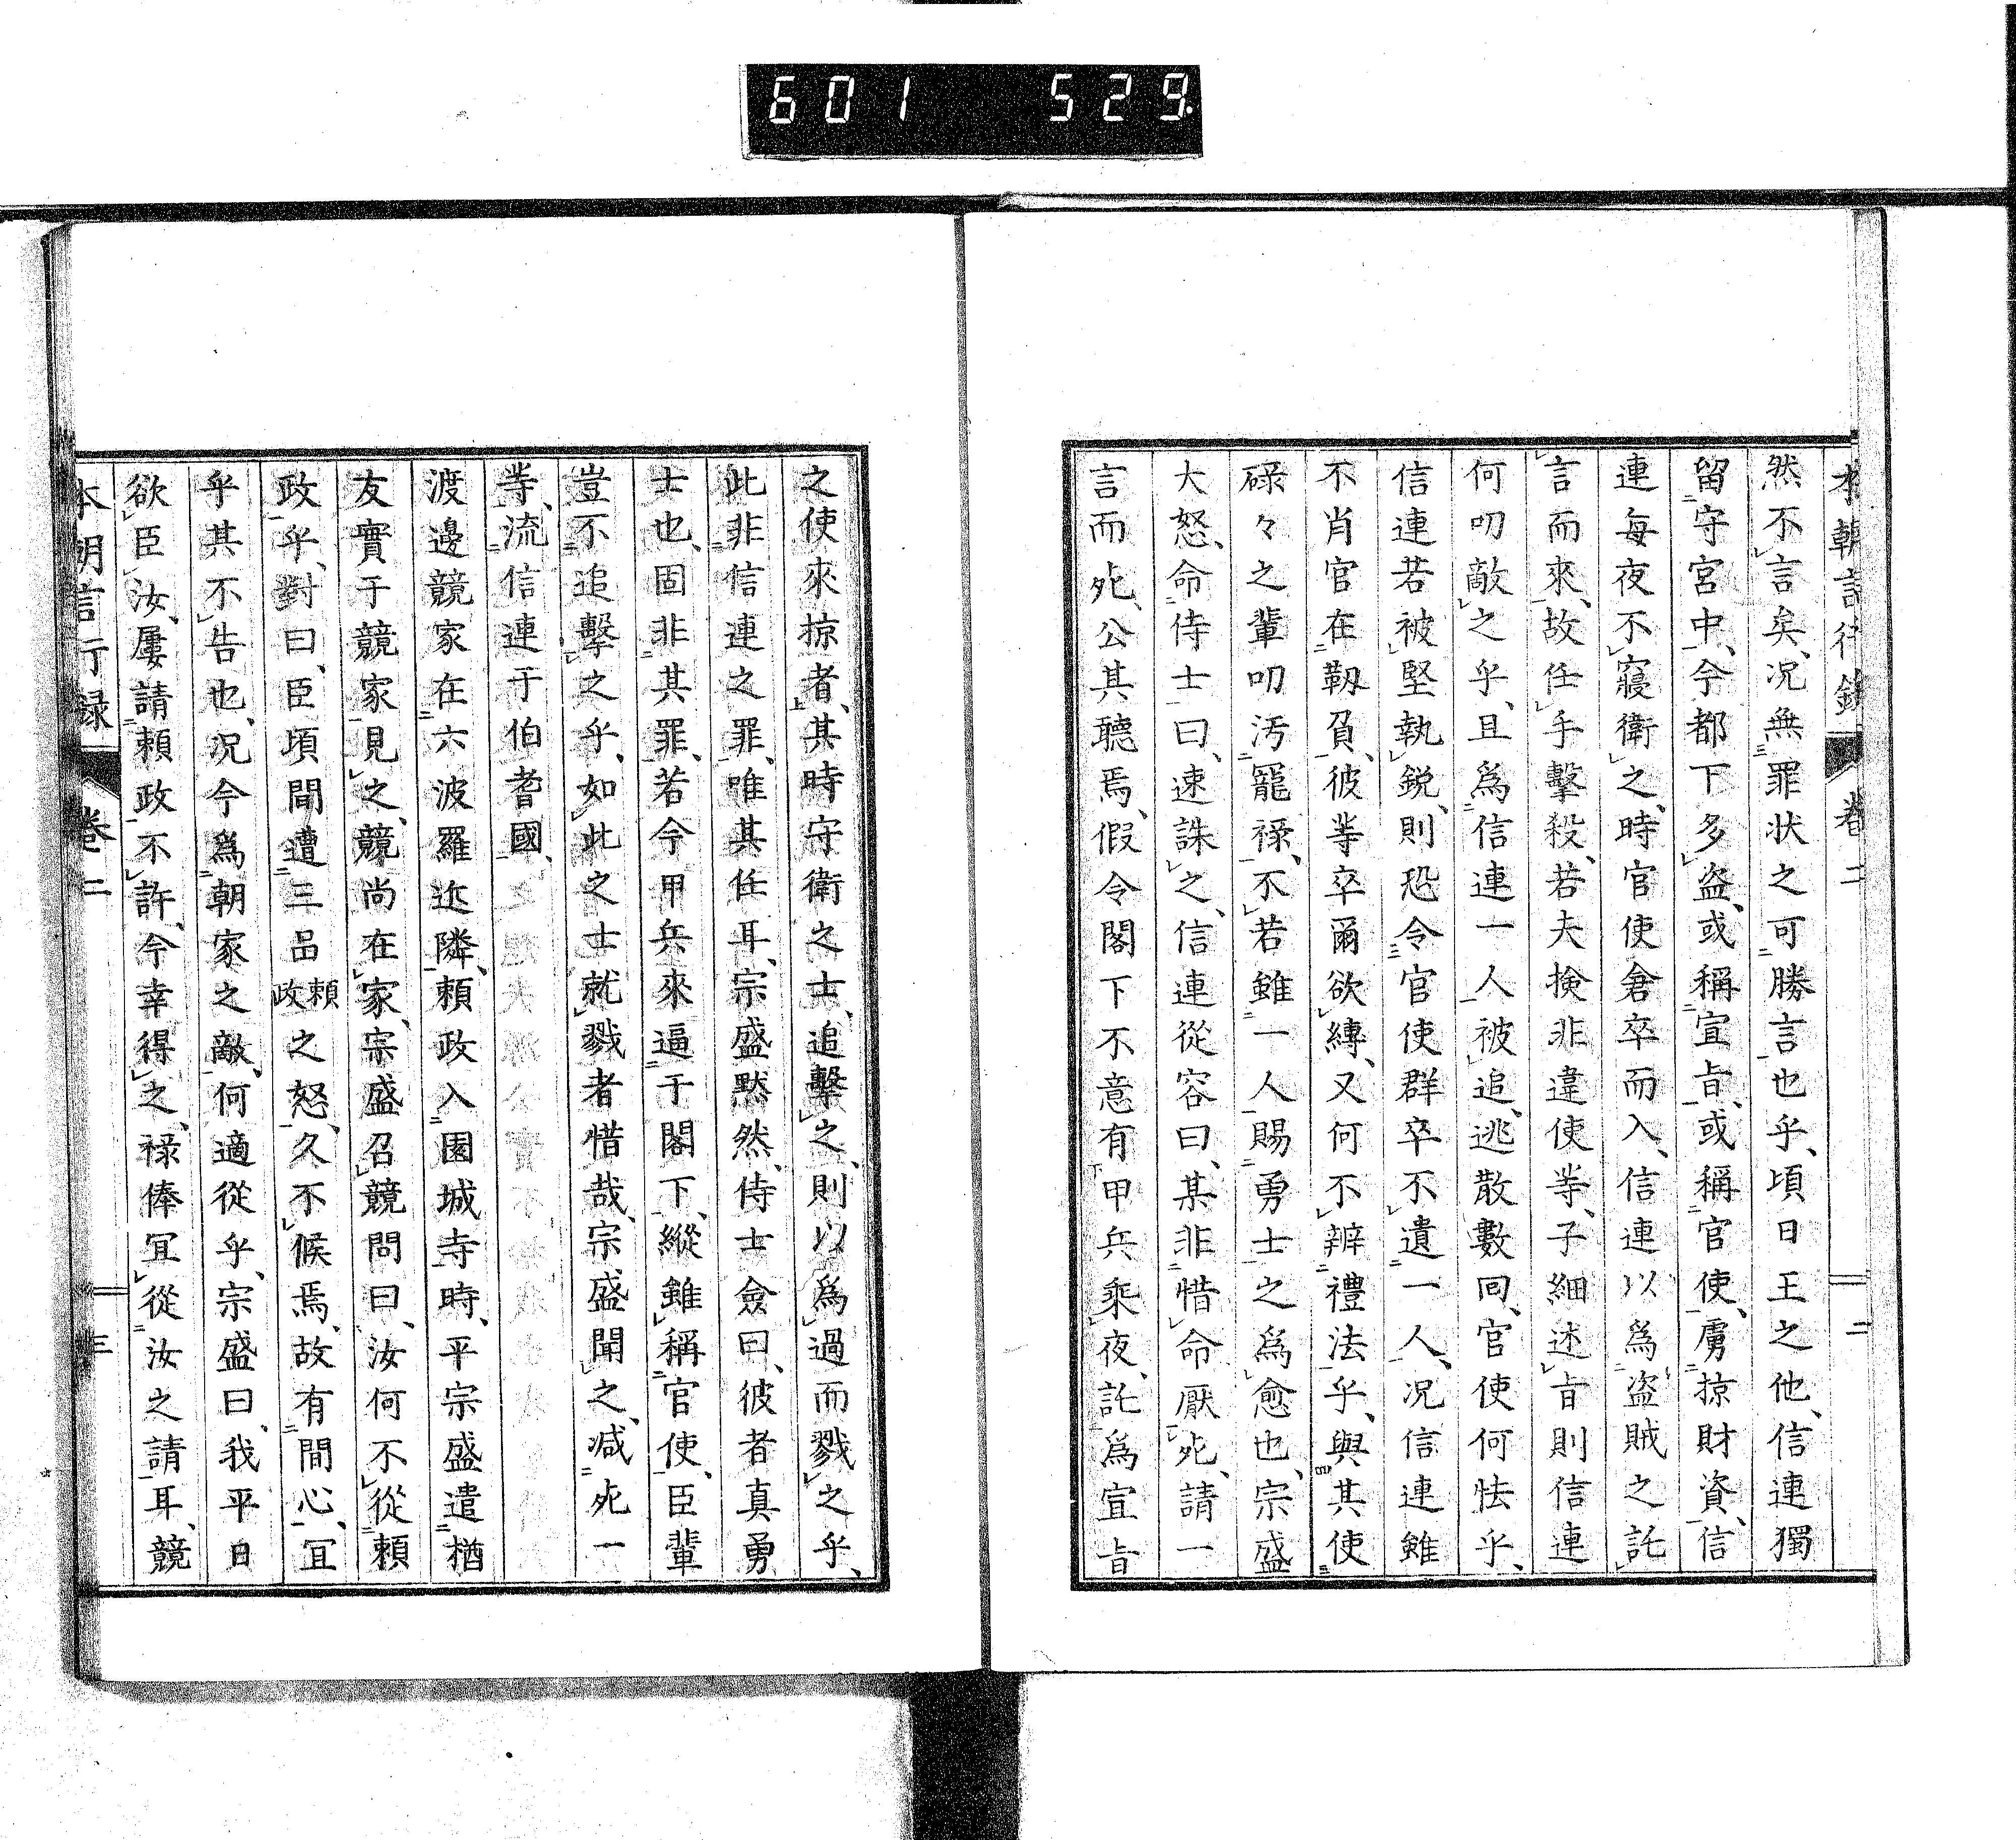 601 529
本朝言行録 卷二 二
然不言矣、况無罪状之可勝言也乎、頃日王之他、信連獨
留守宮中、今都下多盗、或稱宣旨、或稱官使、虜掠財資、信
連毎夜不寢衛之、時官使倉卒而入、信連以爲盗賊之託
言而來、故任手擊殺、若夫撿非違使䒭、子細述旨則信連
何叨敵之乎、且爲信連一人被追、逃散數回、官使何怯乎、
信連若被堅執鋭、則恐令官使群卒不遺一人、况信連雖
不肖官在靱負、彼䒭卒爾欲縳、又何不辨禮法乎、與其使
碌々之輩叨汚寵禄、不若雖一人賜勇士之爲愈也、宗盛
大怒、命侍士曰、速誅之、信連從容曰、某非惜命厭死、請一
言而死、公其聽焉、假令閣下不意有甲兵乘夜、託爲宣旨
之使來掠者、其時守衛之士、追擊之、則以爲過而戮之乎、
此非信連之罪、唯其任耳、宗盛黙然、侍士僉曰、彼者真勇
士也、固非其罪、若今甲兵來逼于閣下、縱雖稱官使、臣輩
豈不追擊之乎、如此之士就戮者惜哉、宗盛聞之、減死一
䒭、流信連于伯耆國、
渡邊競家在六波羅近隣、頼政入園城寺時、平宗盛遣楢
友實于競家見之、競尚在家、宗盛召競問曰、汝何不從頼
政乎、對曰、臣頃間遭三品頼政之怒、久不候焉、故有間心、冝
乎其不告也、况今爲朝家之敵、何適從乎、宗盛曰、我平日
欲臣汝、屢請頼政不許、今幸得之、禄俸冝從汝之請耳、競
本朝言行録 卷二 三